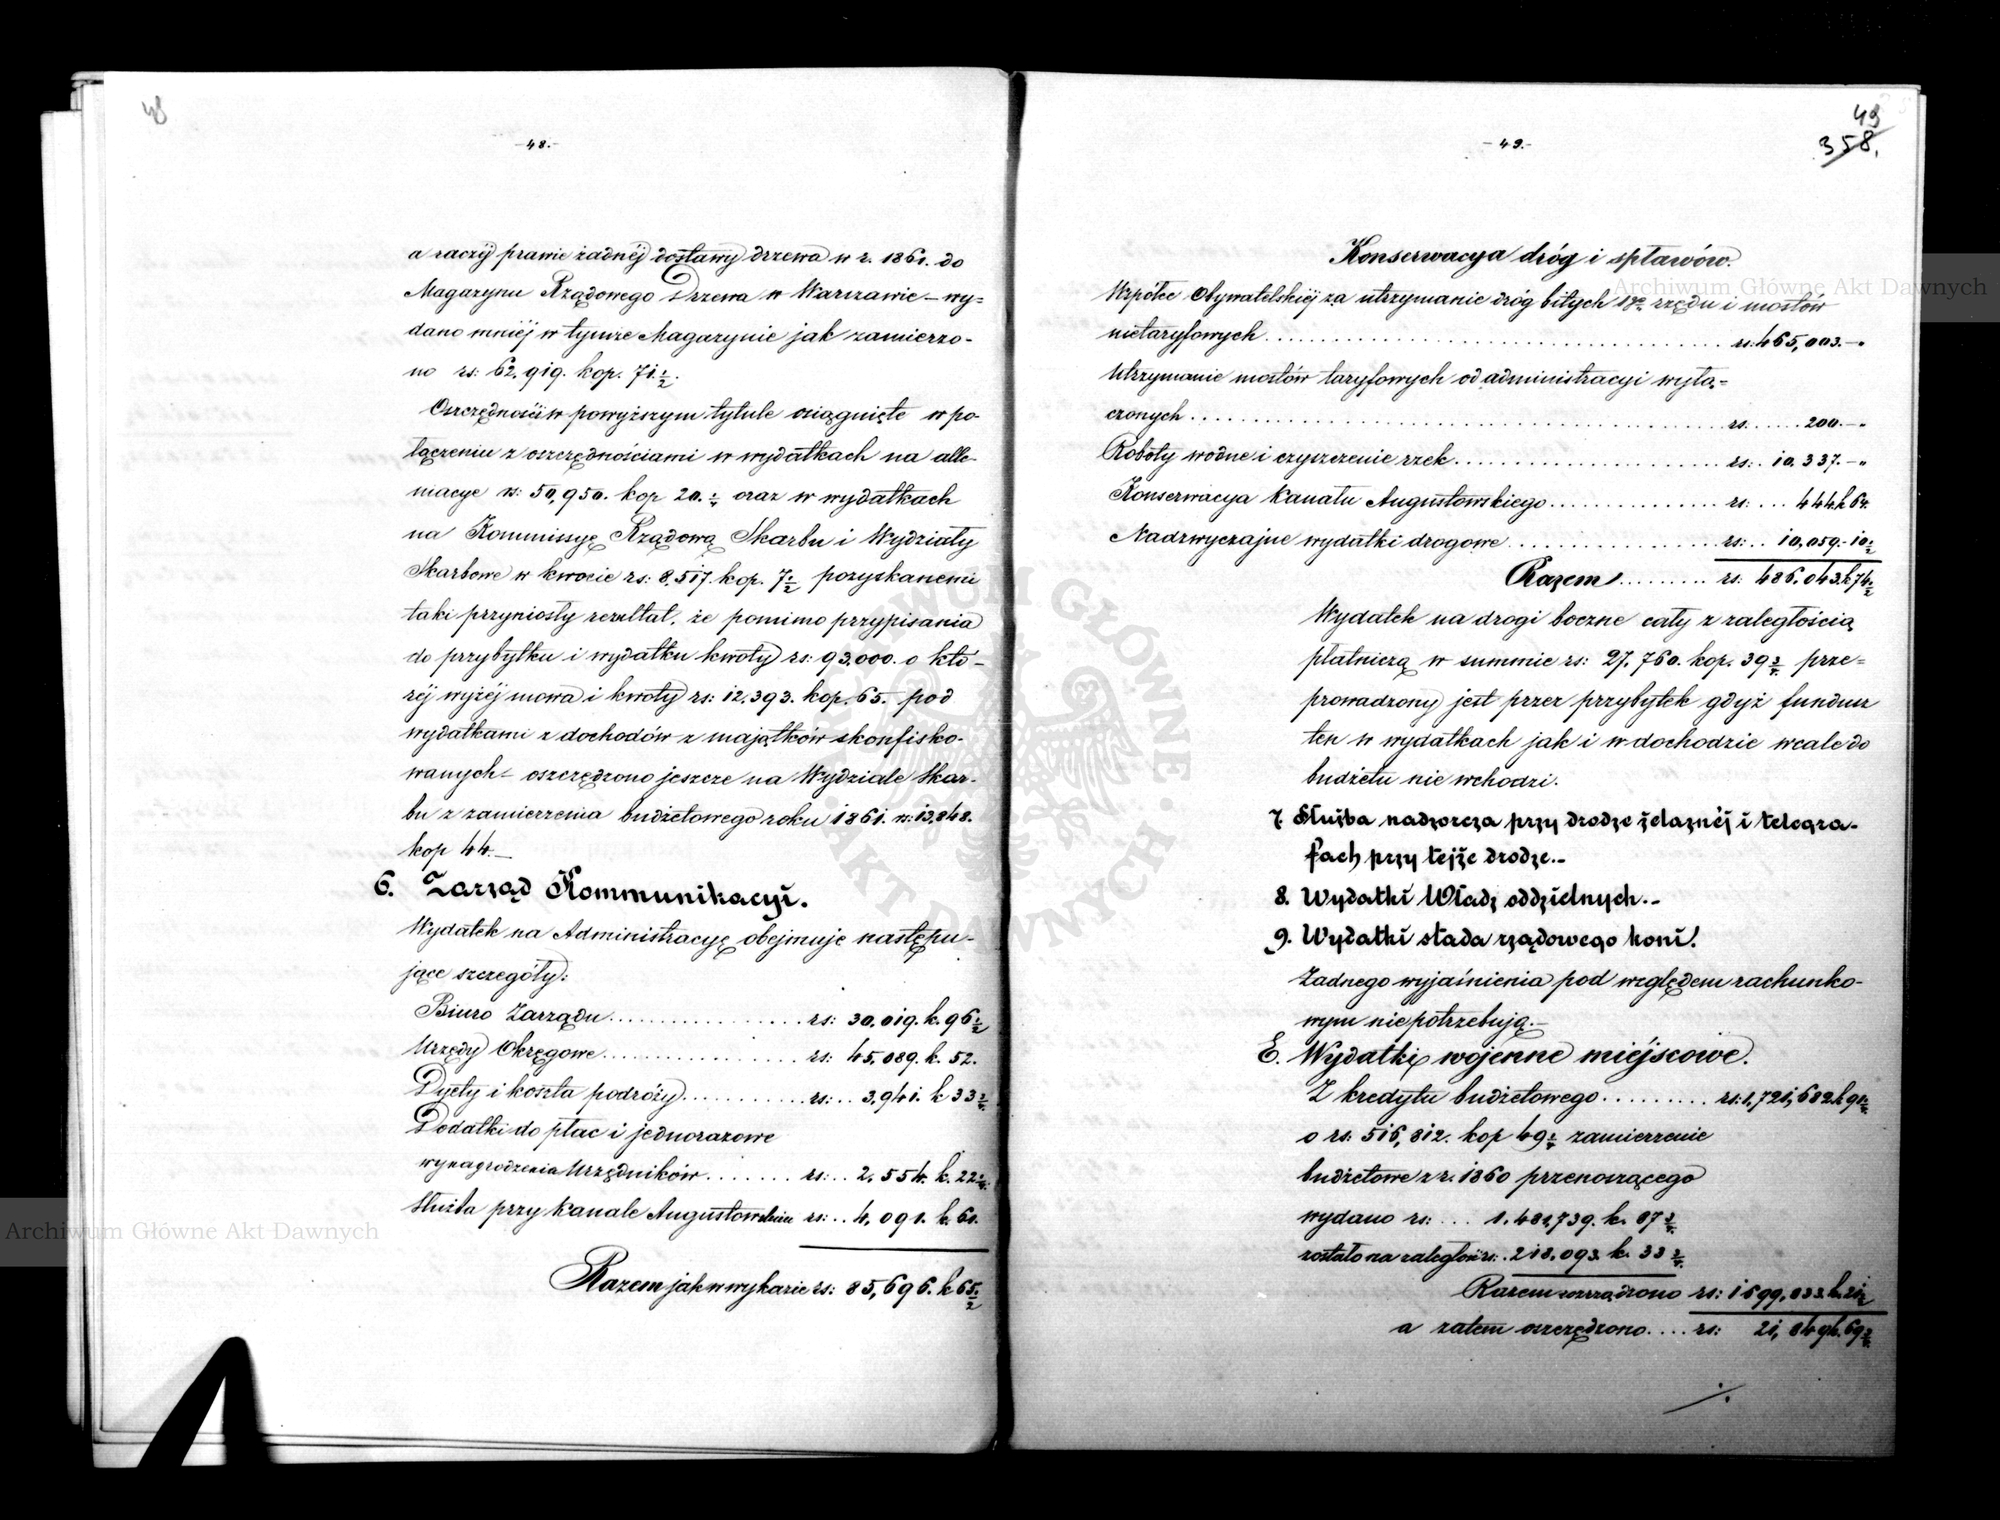 48
- 48. -
a raczéj prawie żadnéj dostawy drzewa w r. 1861. do
Magazynu Rządowego Drzewa w Warszawie – wy=
dano mniéj w tymże Magazynie jak zamierzo-
no rs: 62.919. kop. 71.½.
Oszczędności w powyższym tytule osiągnięte w po-
łączeniu z oszczędnościami w wydatkach na alle-
niacye rs: 50,950. kop 20.½ oraz w wydatkach
na Kommissyę Rządową Skarbu i Wydziały
Skarbowe w kwocie rs: 8.517. kop. 7½ pozyskanemi
taki przyniosły rezultat, że pomimo przypisania
do przybytku i wydatku kwoty rs: 93.000. o któ-
réj wyżéj mowa i kwoty rs: 12.393. kop. 65. pod
wydatkami z dochodów z majątków skonfisko-
wanych – oszczędzono jeszcze na Wydziale Skar-
bu z zamierzenia budżetowego roku 1861. rs: 13,848.
kop 44. –
6. Zarząd Kommunikacyi.
Wydatek na Administracyę obejmuje następu-
jące szczegóły:
Biuro Zarządu ........ rs: 30,019. k. 96½
Urzędy Okręgowe ........ rs: 45,089. k. 52.
Dyety i koszta podróży ........ rs: .. 3,941. k 33¾
Dodatki do płac i jednorazowe
wynagrodzenia Urzędników ....... rs: .. 2,554. k. 22¾
Służba przy kanale Augustowskim rs: .. 4,091. k. 61.
Razem jak w wykazie rs: 85,696. k 65.½
49
358.
- 49. -
Konserwacya dróg i spławów.
Współce Obywatelskiéj za utrzymanie dróg bitych 1go rzędu i mostów
nietaryfowych ........ rs: 465,003. – "
Utrzymanie mostów taryfowych od administracyi wyłą=
czonych ........ rs: ...... 200. – "
Roboty wodne i czyszczenie rzek ........ rs: . 10.337. – "
Konserwacya kanału Augustowskiego ........ rs: .... 444. k 64.
Nadzwyczajne wydatki drogowe ........ rs: .. 10,059. – 10½
Razem ........ rs: 486.043. k 74½
Wydatek na drogi boczne cały z zaległością
płatniczą w summie rs: 27.760. kop. 39¾ prze=
prowadzony jest przez przybytek gdyż fundusz
ten w wydatkach jak i w dochodzie wcale do
budżetu nie wchodzi.
7. Służba nadzorcza przy drodze żelaznéj i telegra-
fach przy tejże drodze. –
8. Wydatki Władz oddzielnych. –
9. Wydatki stada rządowego koni.
Żadnego wyjaśnienia pod względem rachunko-
wym nie potrzebują. –
E. Wydatki wojenne miéjscowe.
Z kredytu budżetowego ........ rs: 1,721,682. k 91¼
o rs: 516,812. kop 49¼ zamierzenie
budżetowe z r. 1860 przenoszącego
wydano rs: ... 1.481,739. k. 87¾
zostało na zaległości rs: . 218.093. k. 33¾
Razem rozrządzono rs: 1699,833. k. 21½
a zatem oszczędzono .... rs: 21,849. k. 69¾
./.
Archiwum Główne Akt Dawnych
Archiwum Główne Akt Dawnych
ARCHIWUM GŁÓWNE
AKT DAWNYCH